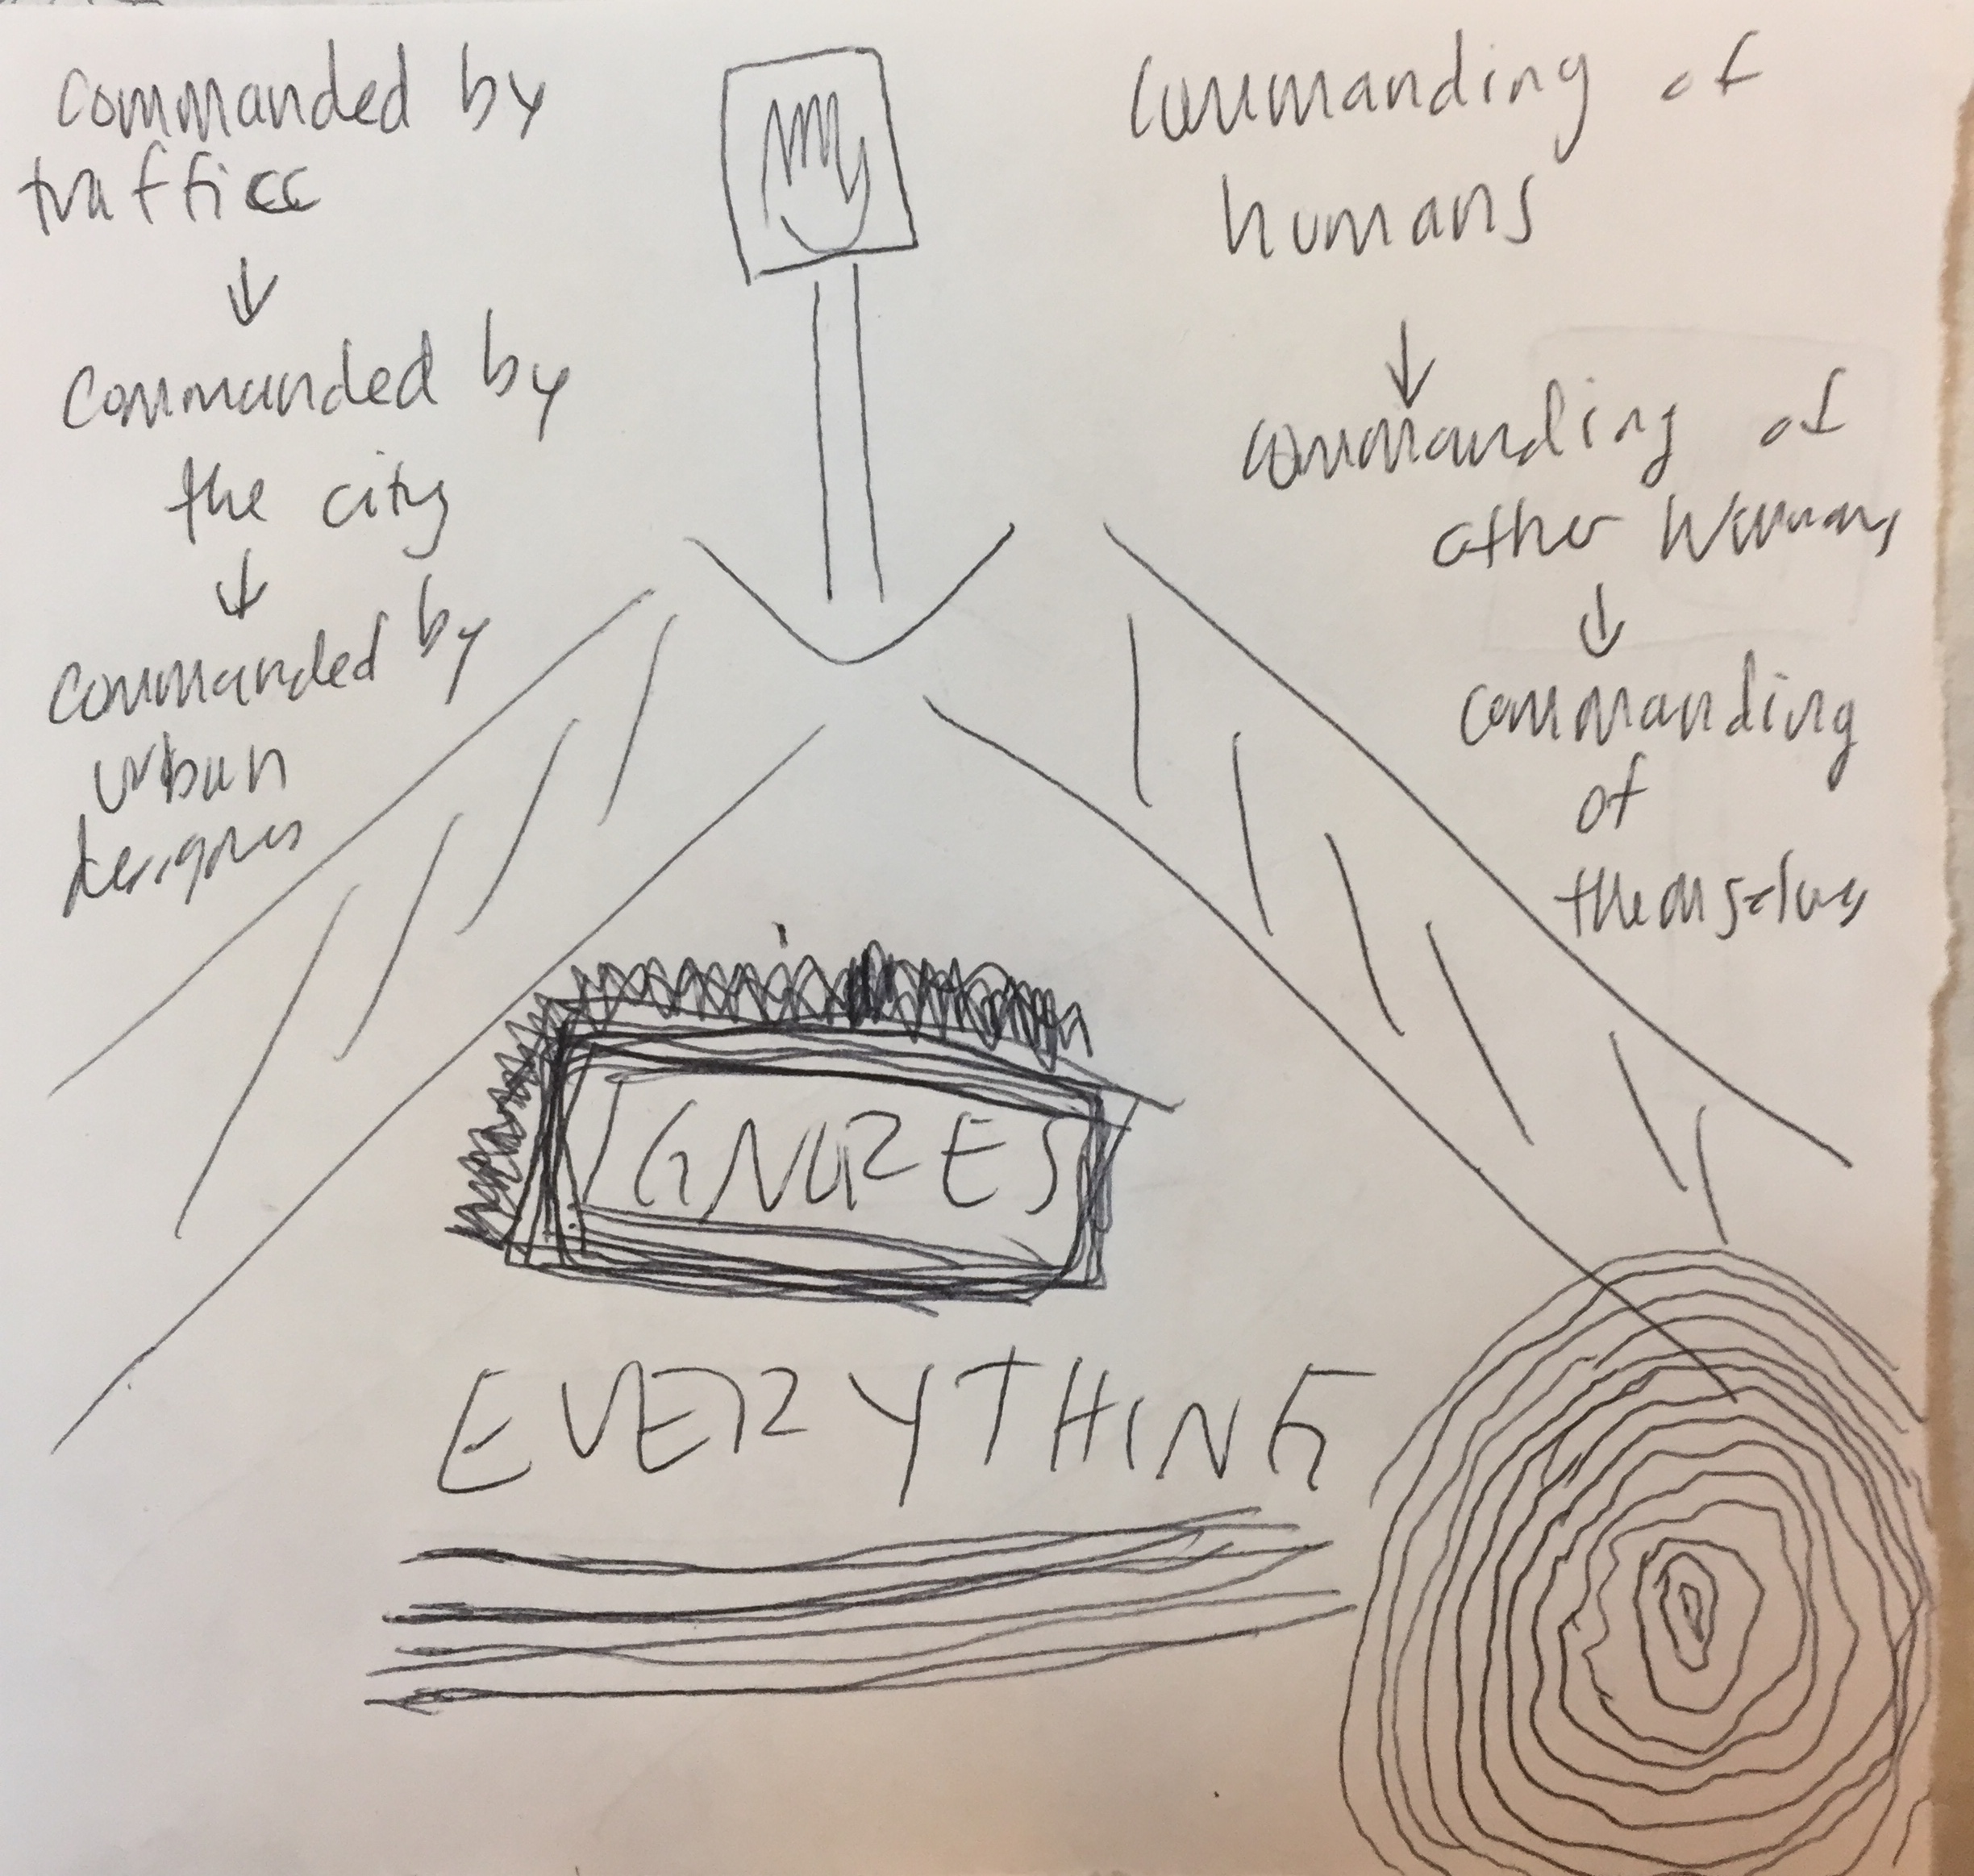 commanded by
trafficc
commanded by
the city
commanded by
urban
commanding of
humans
commanding of
other humans
commanding
of
themselves
IGNORES
EVERYTHING